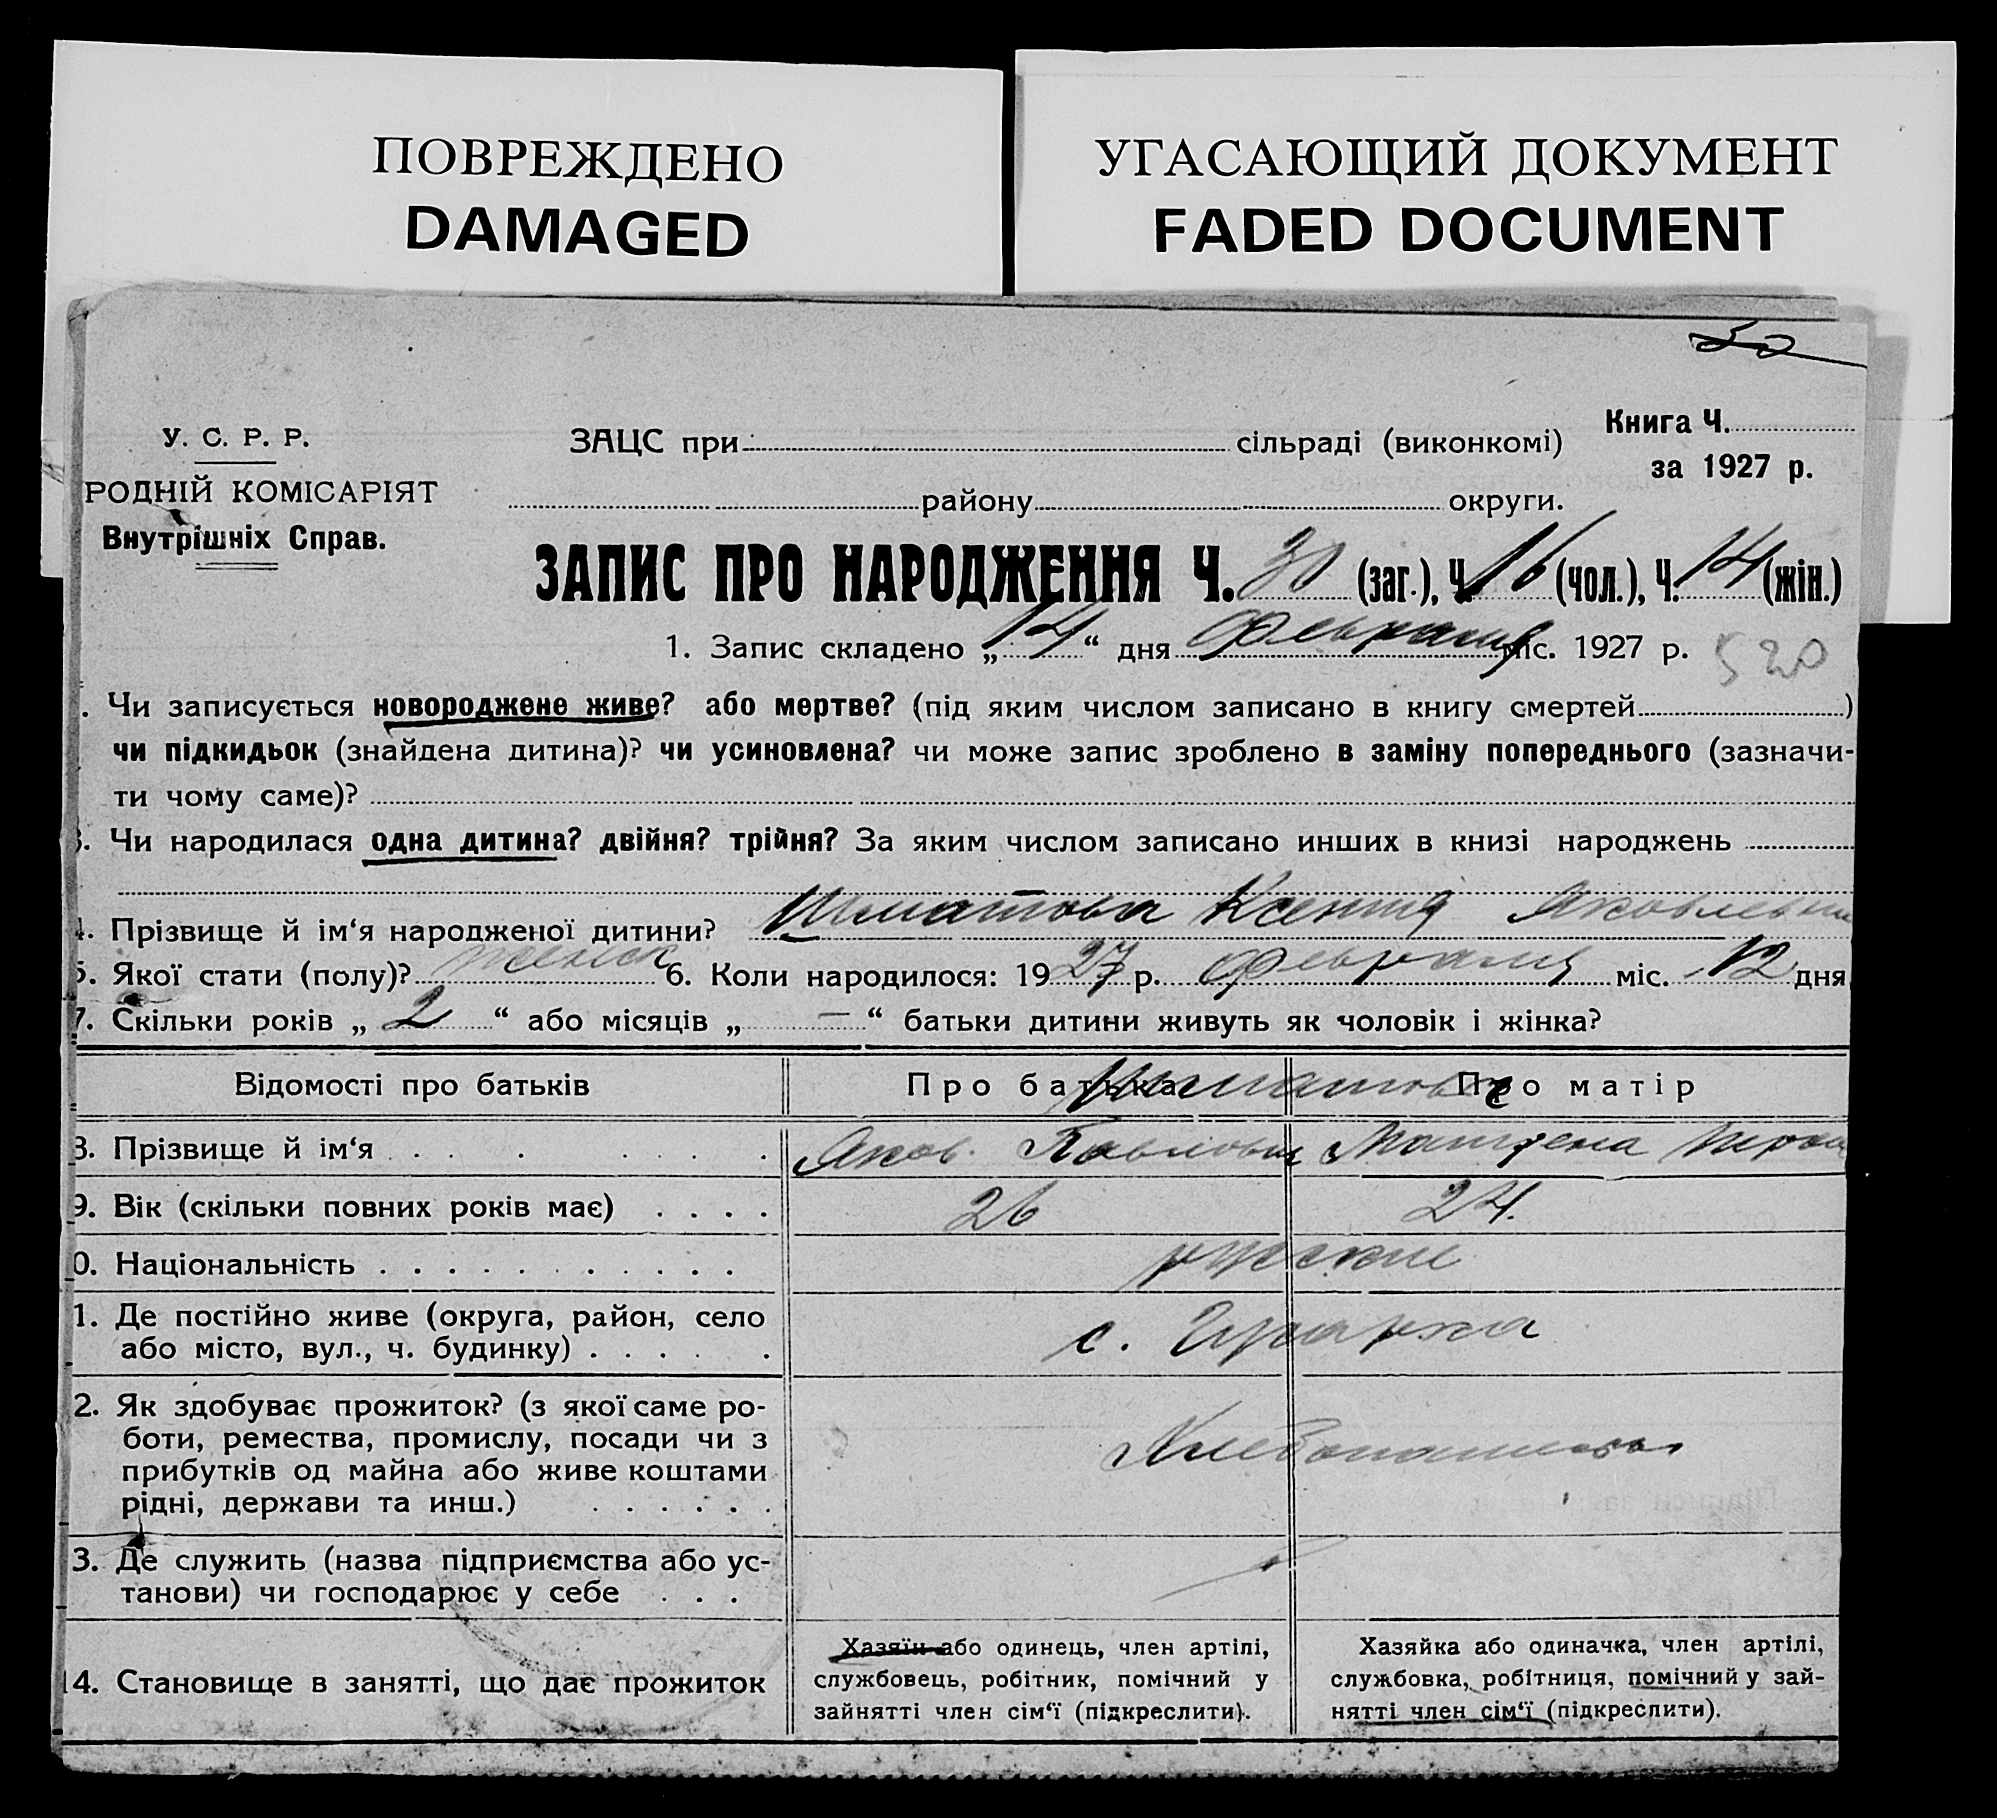 ПОВРЕЖДЕНО
DAMAGED
УГАСАЮЩИЙ ДОКУМЕНТ
FADED DOCUMENT
У. С. Р. Р.
РОДНІЙ КОМІСАРІЯТ
Внутрішніх Справ.
ЗАЦС при сільраді (виконкомі)
району округи.
Книга Ч.
за 1927 р.
ЗАПИС ПРО НАРОДЖЕННЯ Ч. 30 (заг.), Ч. 16 (чол.), Ч. 14 (жін.)
1. Запис складено „14“ дня февраля міс. 1927 р. 520
. Чи записується новороджене живе? або мертве? (під яким числом записано в книгу смертей )
чи підкидьок (знайдена дитина)? чи усиновлена? чи може запис зроблено в заміну попереднього (зазначи-
ти чому саме)?
3. Чи народилася одна дитина? двійня? трійня? За яким числом записано инших в книзі народжень
4. Прізвище й ім‘я народженої дитини? Шматова Ксения Яковлевна
5. Якої стати (полу)? женск 6. Коли народилося: 1927 р. февраля міс. 12 дня
7. Скільки років „ 2 “ або місяців „ — “ батьки дитини живуть як чоловік і жінка?
Відомості про батьків Про батька Про матір
8. Прізвище й ім‘я Яков. Павлович
9. Вік (скільки повних років має) 26 24.
0. Національність русские
1. Де постійно живе (округа, район, село
або місто, вул., ч. будинку) с.
2. Як здобуває прожиток? (з якої саме ро-
боти, ремества, промислу, посади чи з
прибутків од майна або живе коштами
рідні, держави та инш.)
3. Де служить (назва підприємства або ус-
танови) чи господарює у себе
14. Становище в занятті, що дає прожиток
Хазяїн або одинець, член артілі,
службовець, робітник, помічний у
зайнятті член сім‘ї (підкреслити).
Хазяйка або одиначка, член артілі,
службовка, робітниця, помічний у зай-
нятті член сім‘ї (підкреслити).